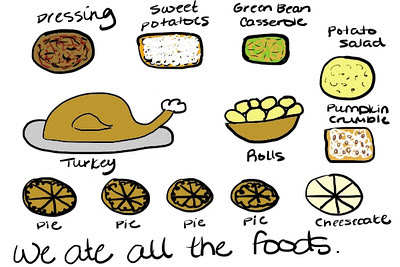 Dressing
Sweet
potatoes
Green Bean
Casserole
Potato
Salad
Turkey
Rolls
Pumpkin
Crumble
Pie
Pie
Pie
Pie
Cheesecake
We ate all the foods.